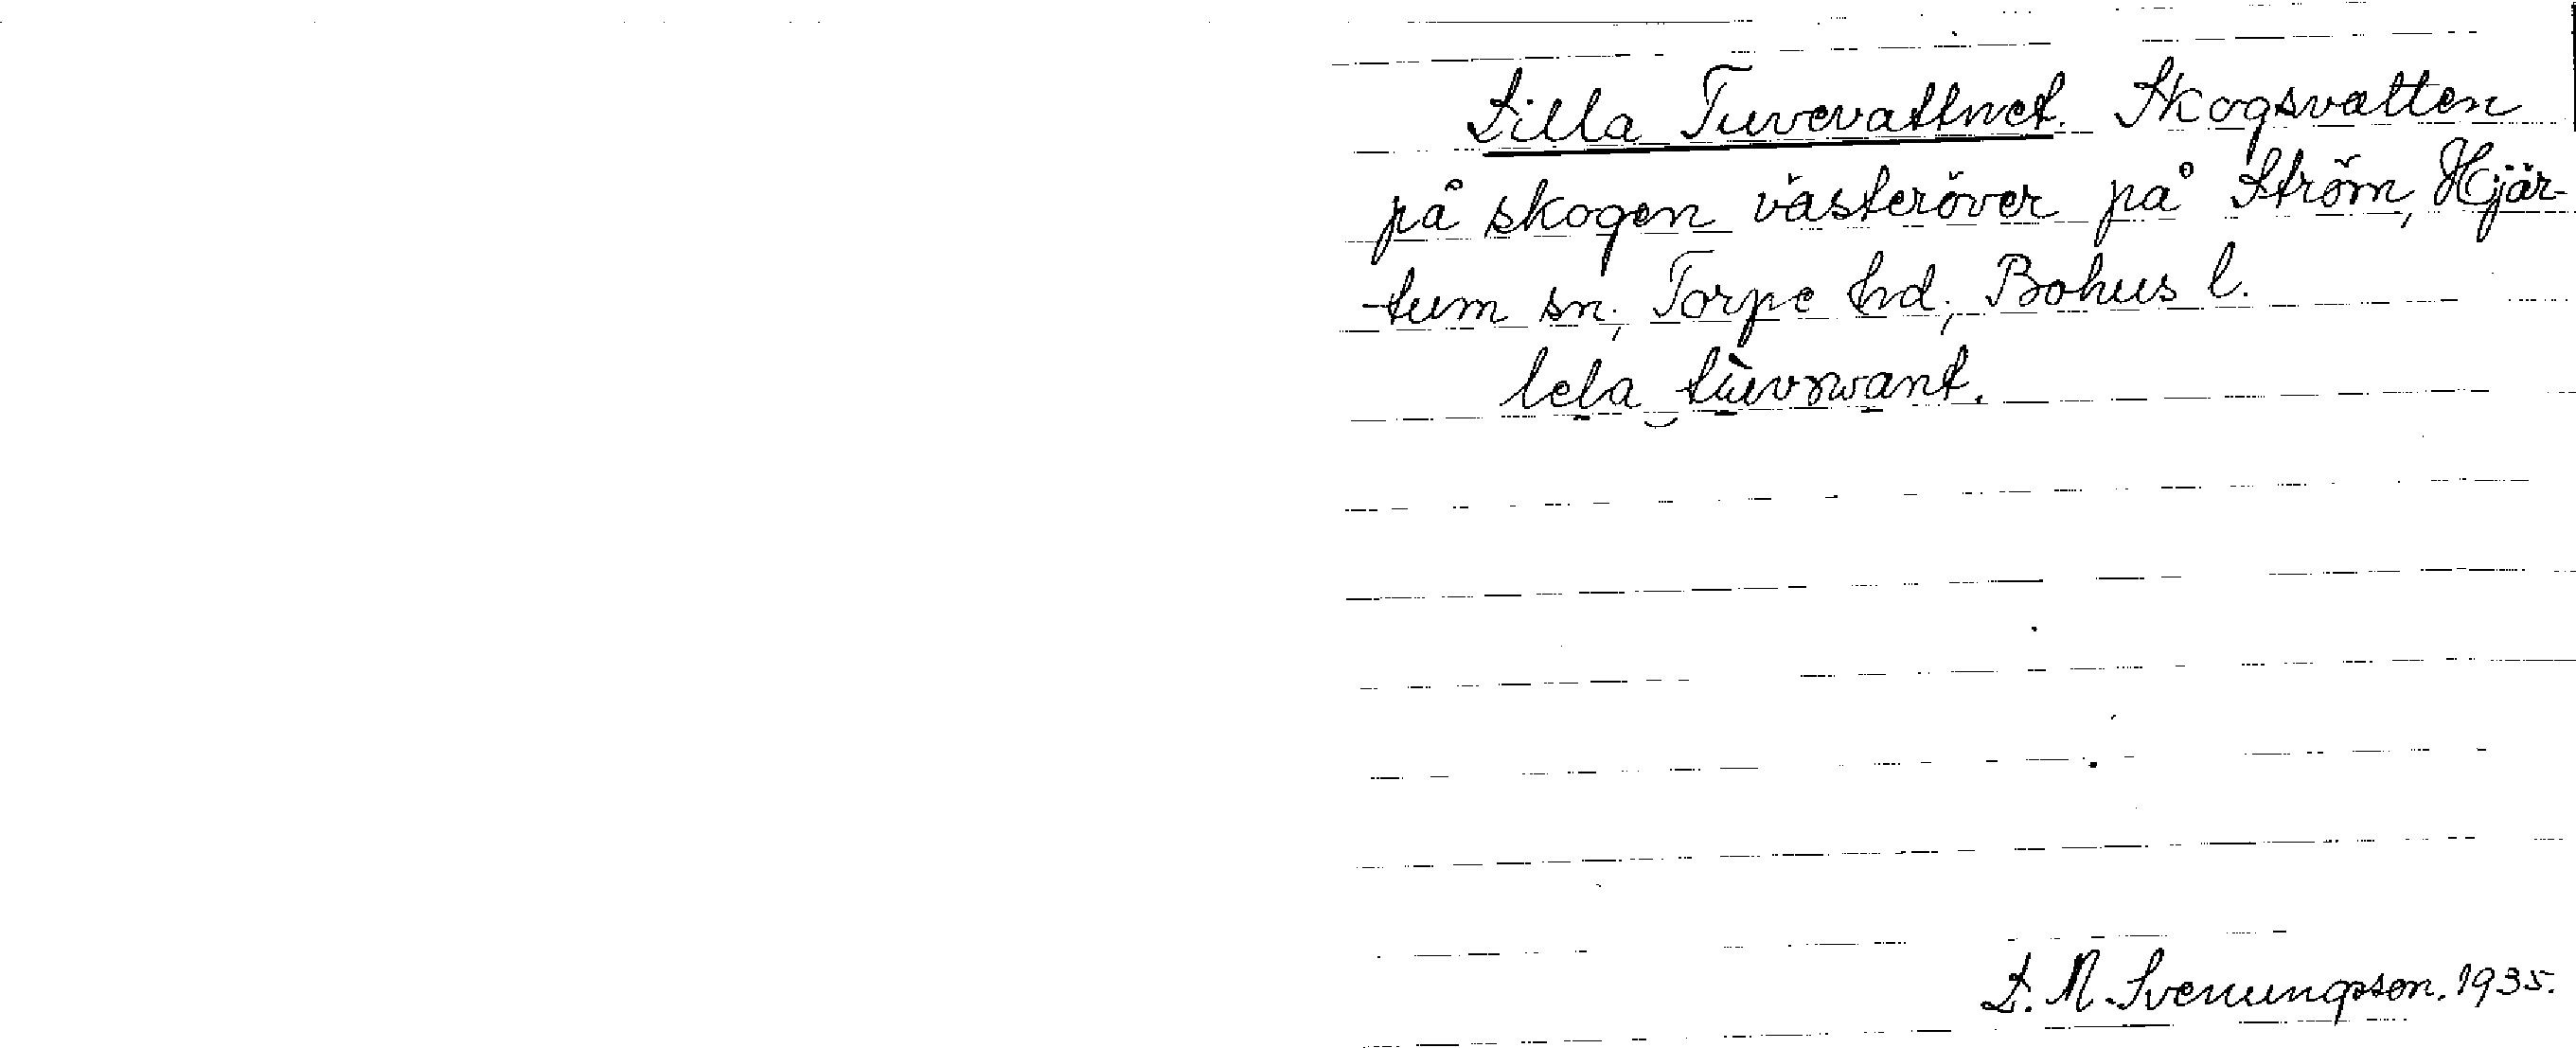 Lilla Tuvevattnet. Skogsvatten
på skogen västeröver på Ström, Hjär-
-tum sn., Torpe hd., Bohus l.
lela
L. M. Svenungsson. 1935.